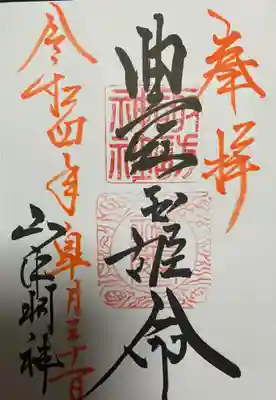 奉拝
豊玉姫命
神社
令和四年皐月三十一日
明神